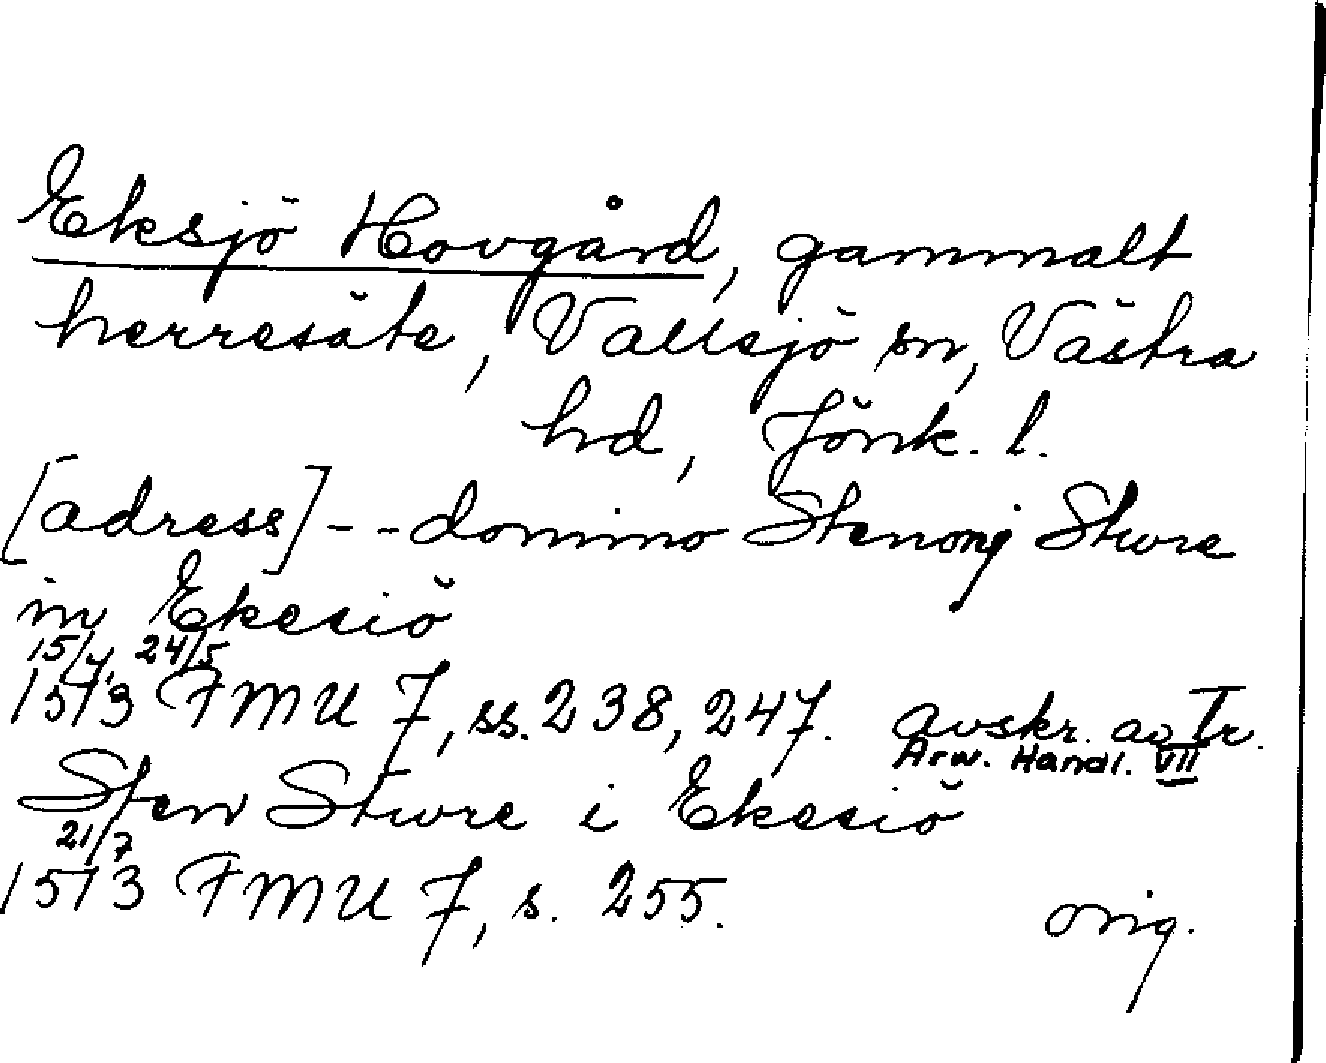 Eksjö Hovgård, gammalt
herresäte, Vallsjö sn, Västra
hd, Jönk. l.
[adress] - - domino Stenonj Sture
in Ekesiö
15/4, 24/5
1513 FMU 7, ss. 238, 247. avskr. av Tr.
Arw. Handl. VII
Sten Sture i Ekesiö
21/7
1513 FMU 7, s. 255. orig.